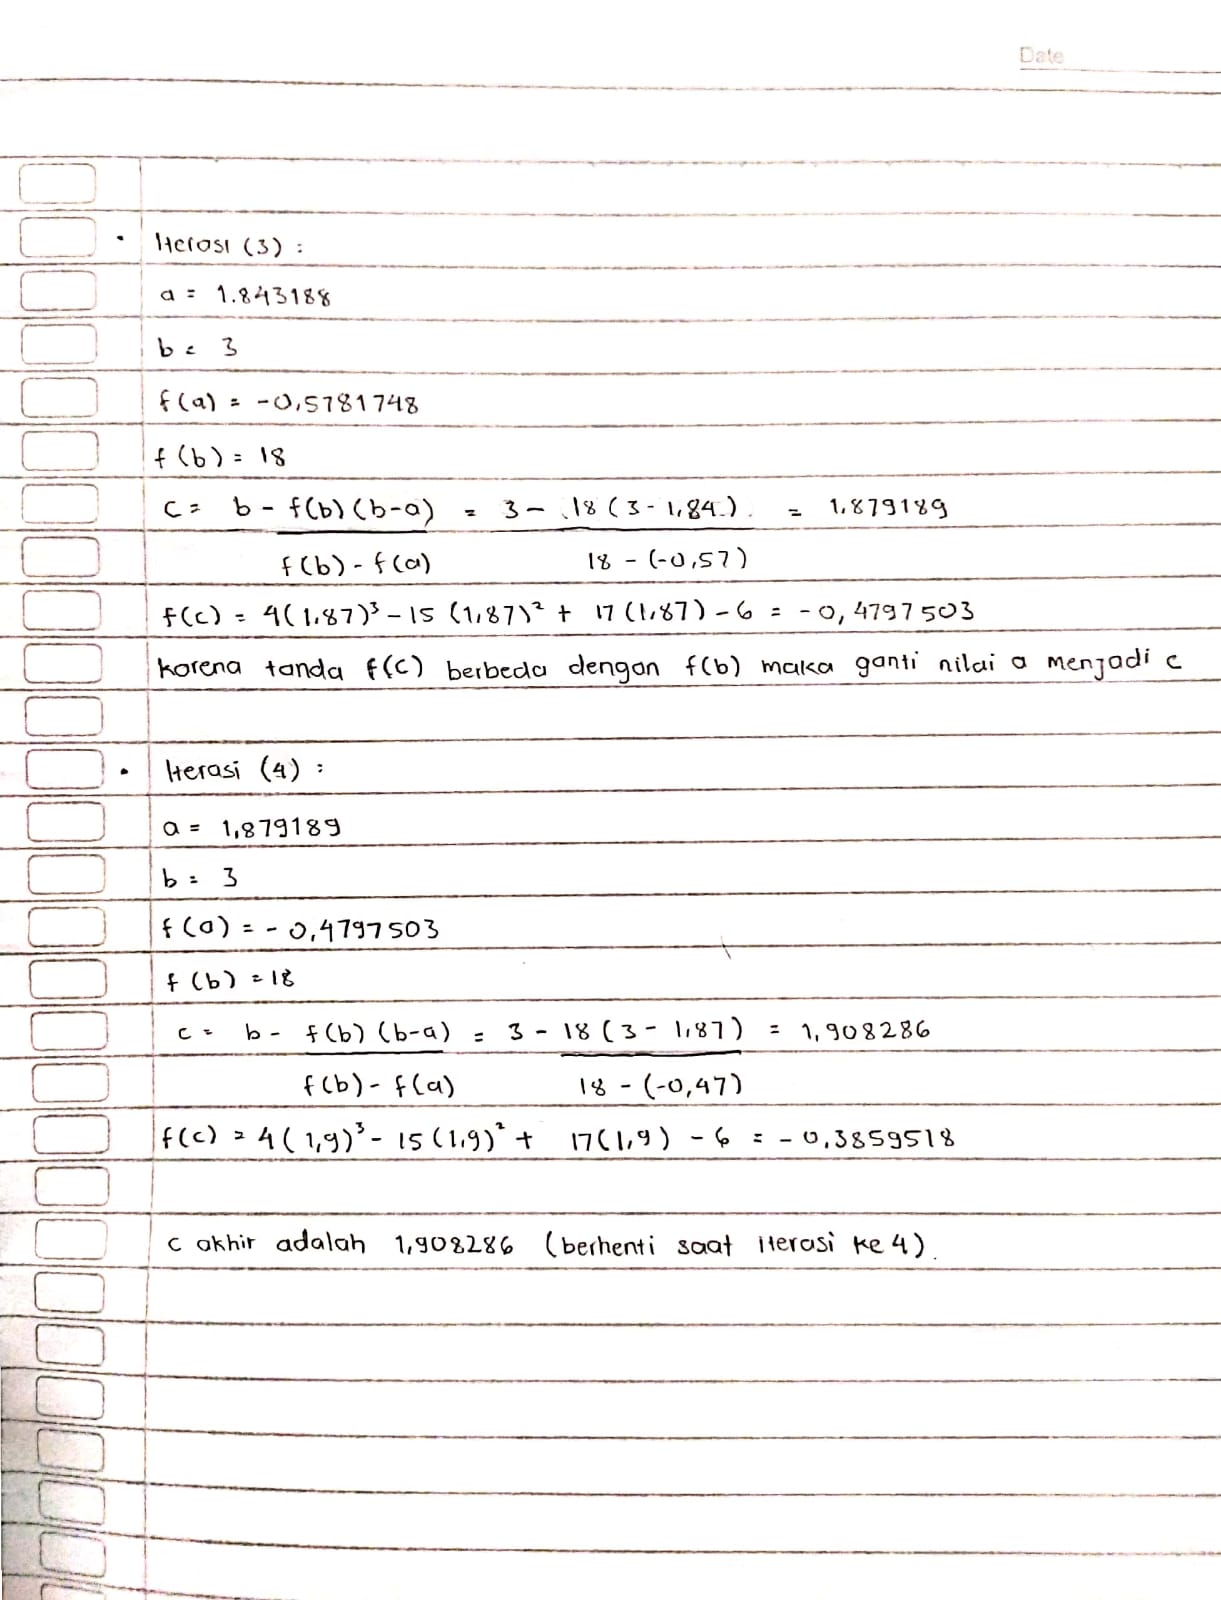 Date
• Iterasi (3) :
a = 1.843188
b = 3
f(a) = -0,5781748
f(b) = 18
c = b - f(b)(b-a) = 3 - 18 (3 - 1,84) = 1,879189
f(b) - f(a) 18 - (-0,57)
f(c) = 4(1,87)³ - 15 (1,87)² + 17 (1,87) - 6 = -0,4797503
karena tanda f(c) berbeda dengan f(b) maka ganti nilai a menjadi c
• Iterasi (4) :
a = 1,879189
b = 3
f(a) = -0,4797503
f(b) = 18
c = b - f(b) (b-a) = 3 - 18 (3 - 1,87) = 1,908286
f(b) - f(a) 18 - (-0,47)
f(c) = 4(1,9)³ - 15(1,9)² + 17(1,9) - 6 = -0,3859518
c akhir adalah 1,908286 (berhenti saat iterasi ke 4).